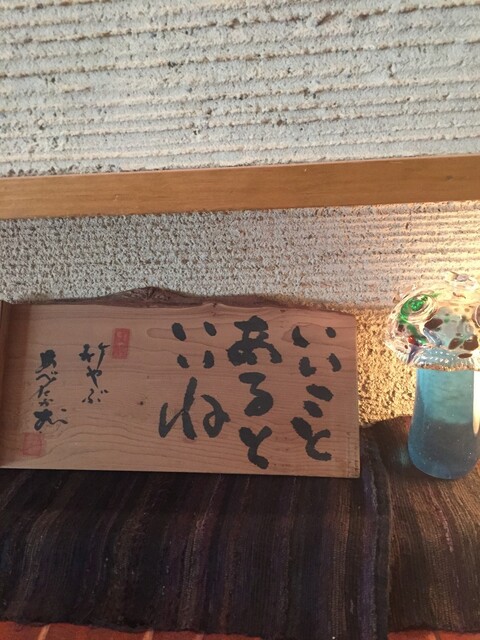 いいこと
あると
いいね
竹やぶ
あべたかお